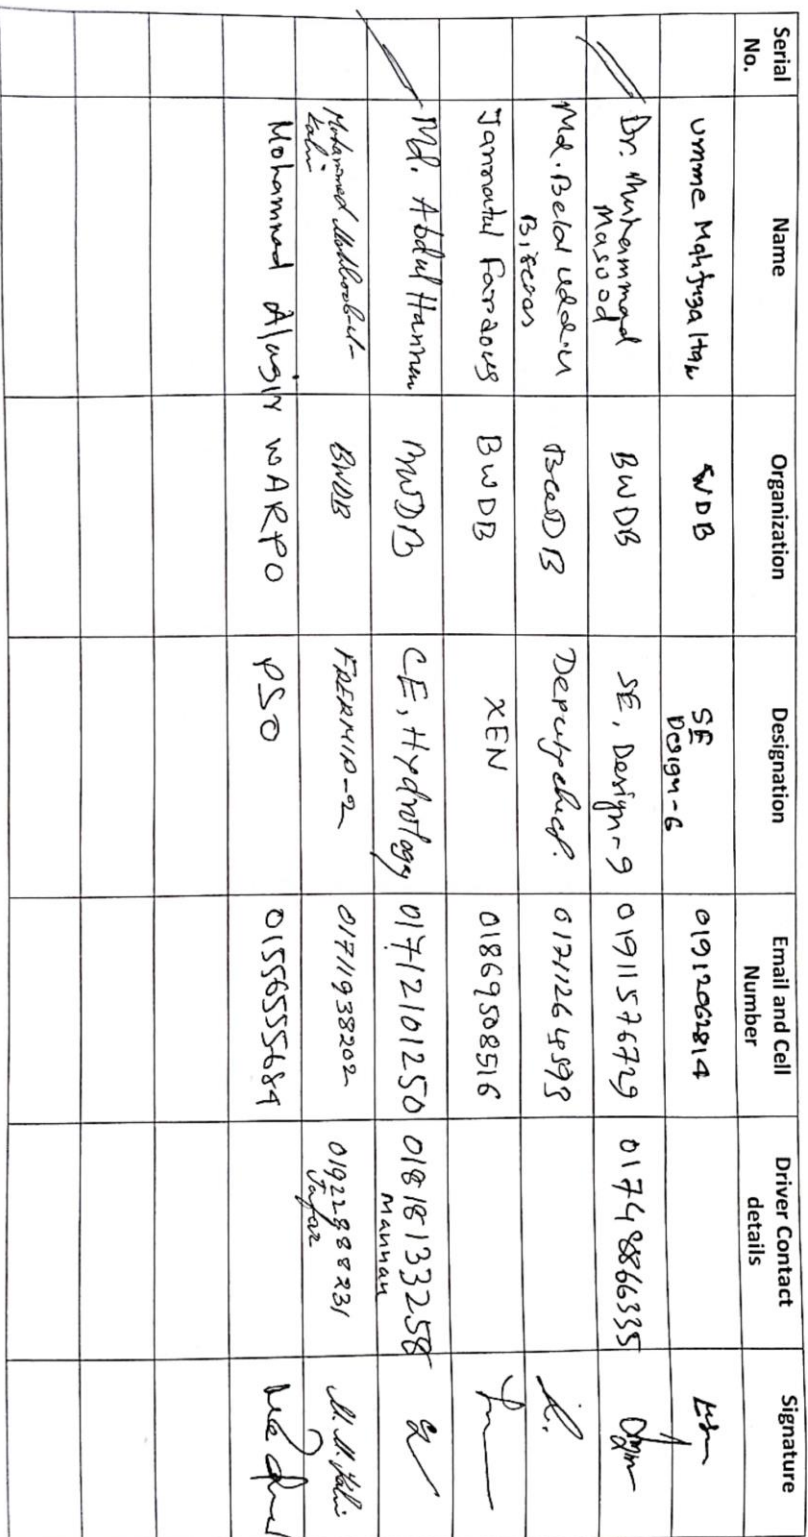 Serial No. Name Organization Designation Email and Cell Number Driver Contact details Signature
Umme Mahfuza Haq BWDB SE Design-6 01912062814
Dr. Muhammad Masood BWDB SE, Design-9 01911576729 01748866335
Md. Belal Uddin Biswas BWDB Deputy chief. 01711264593
Jannatul Fardous BWDB XEN 01869508516
Md. Abdul Hannan BWDB CE, Hydrology 01712101250 01818133258 Mannan
Mohammed BWDB FRERMIP-2 01711938202 01922988231 Jafar
Mohammad Alamgir WARPO PSO 01556555684